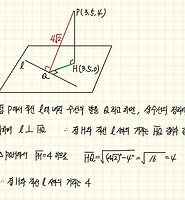 P(3.5,4)
4√2
H(3.5,0)
l
Q
점 P에서 직선 l에 내린 수선의 발을 Q라고 하면, 삼수선의 정리
l ⊥ HQ ∴ 점 H와 직선 l 사이의 거리는 HQ
PH = 4 이므로 HQ = √((4√2)²-4²) = √16 = 4
∴ 점 H와 직선 l 사이의 거리는 4